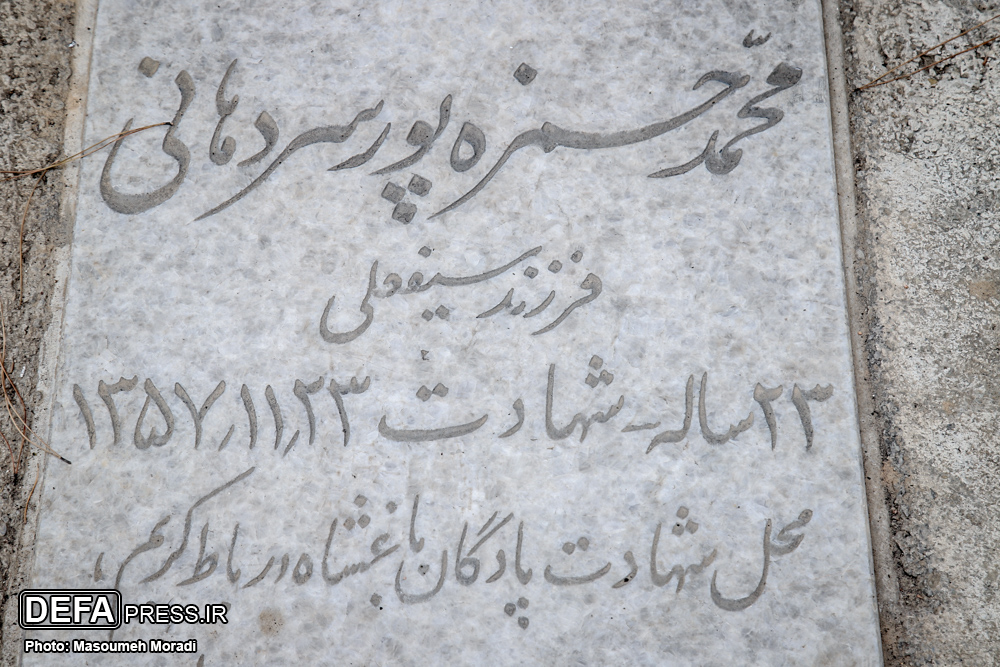 محمّد حمزه پور سردهانی
فرزند سیفعلی
۲۳ ساله - شهادت ۱۳۵۷٫۱۱٫۲۳
محل شهادت پادگان باغشاه در رباط کریم
DEFAPRESS.IR
Photo: Masoumeh Moradi